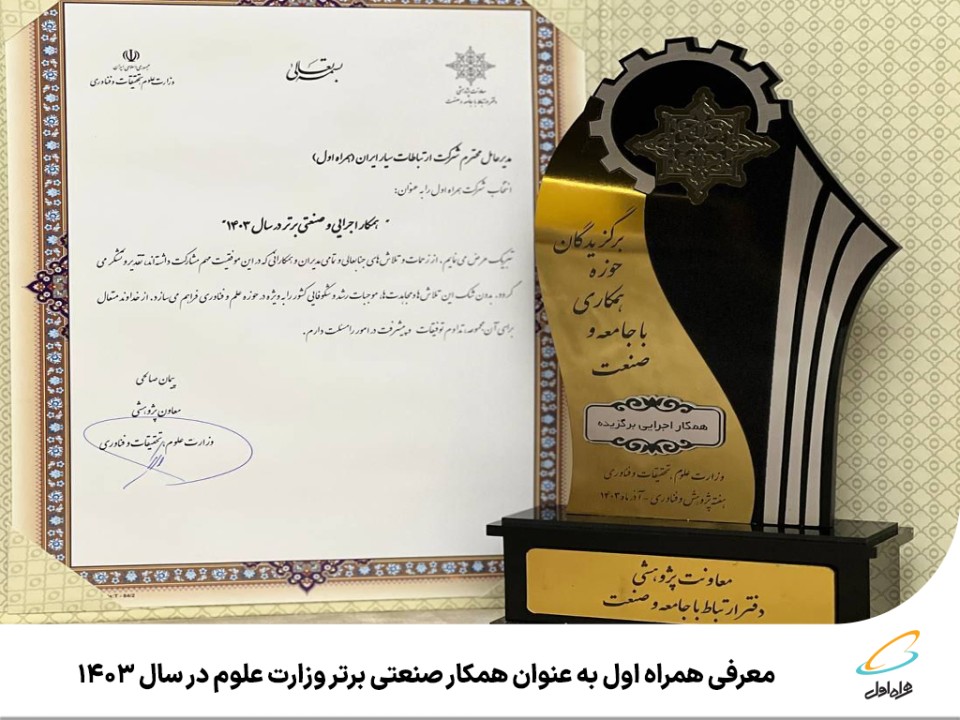 جمهوری اسلامی ایران
وزارت علوم، تحقیقات و فناوری
بسمه تعالی
معاونت پژوهشی
دفتر ارتباط با جامعه و صنعت
مدیر عامل محترم شرکت ارتباطات سیار ایران (همراه اول)
انتخاب شرکت همراه اول را به عنوان:
"همکار اجرایی و صنعتی برتر در سال ۱۴۰۳"
تبریک عرض می نمایم. از زحمات و تلاش های جنابعالی و تمامی مدیران و همکارانی که در این موفقیت مهم مشارکت داشته اند، تقدیر و تشکر می
گردد. بدون شک این تلاش ها و مجاهدت ها، موجبات رشد و شکوفایی کشور را به ویژه در حوزه علم و فناوری فراهم می سازد. از خداوند متعال
برای آن مجموعه، تداوم توفیقات و پیشرفت در امور را مسئلت دارم.
پیمان صالحی
معاون پژوهشی
وزارت علوم، تحقیقات و فناوری
برگزیدگان
حوزه
همکاری
با جامعه و
صنعت
همکار اجرایی برگزیده
وزارت علوم، تحقیقات و فناوری
هفته پژوهش و فناوری - آذر ماه ۱۴۰۳
معاونت پژوهشی
دفتر ارتباط با جامعه و صنعت
معرفی همراه اول به عنوان همکار صنعتی برتر وزارت علوم در سال ۱۴۰۳
همراه اول